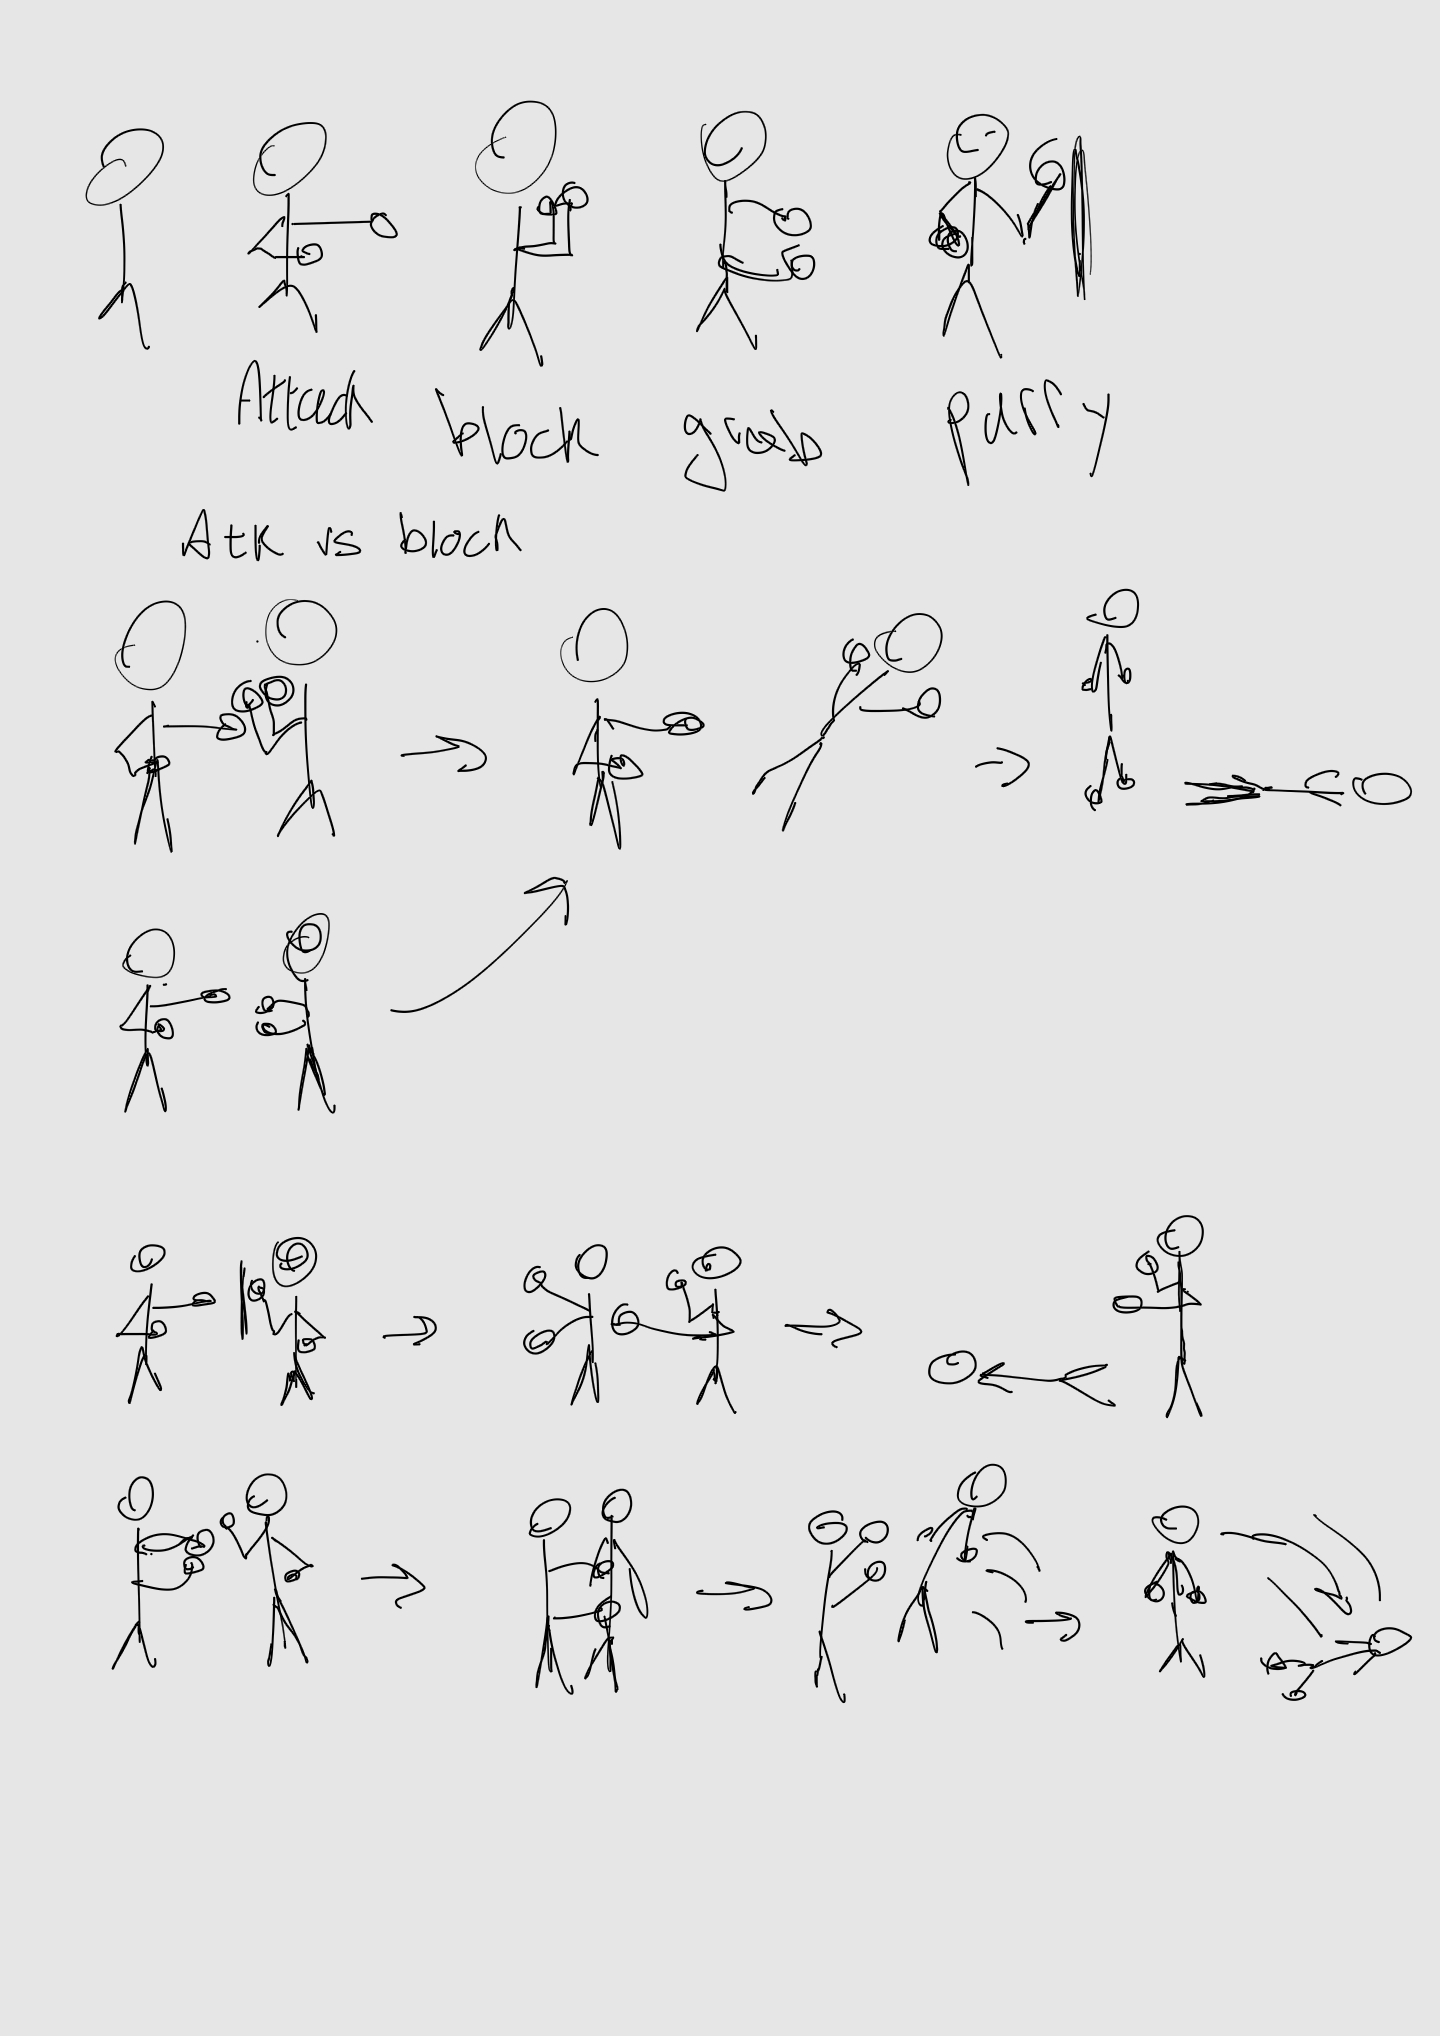 Attack block grab parry
Atk vs block